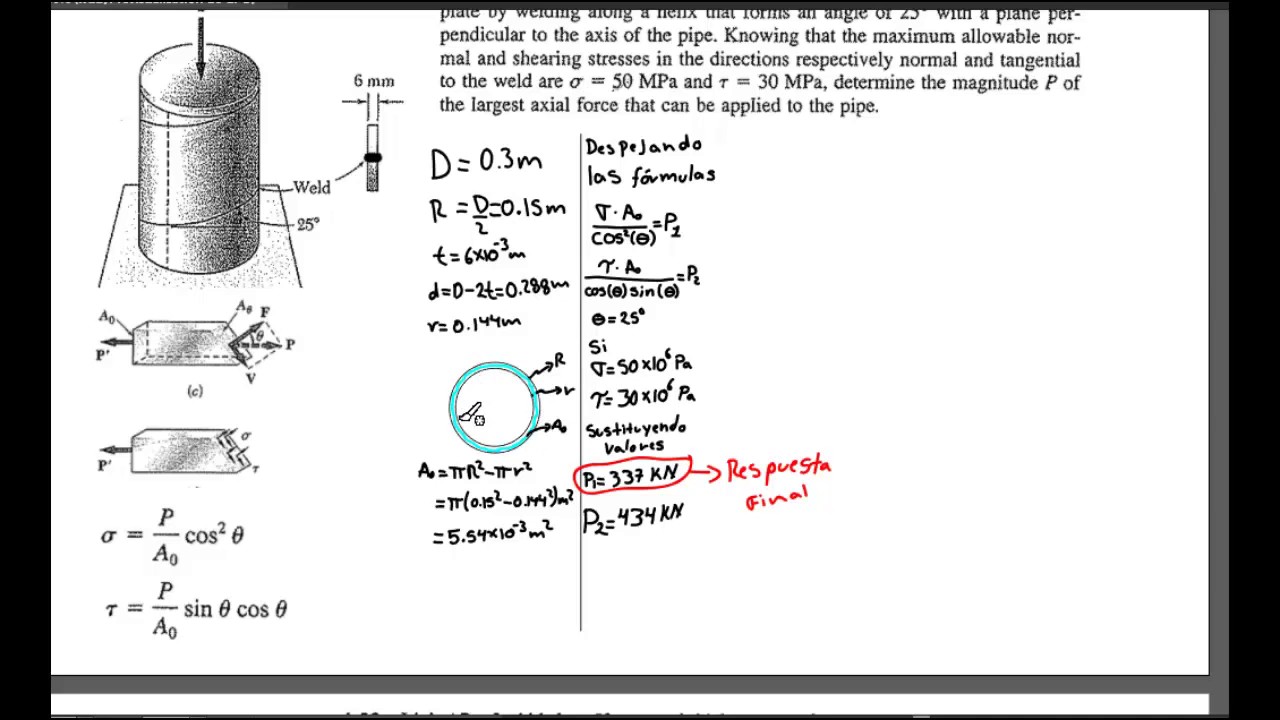 plate by welding along a helix that forms an angle of 25° with a plane per-
pendicular to the axis of the pipe. Knowing that the maximum allowable nor-
mal and shearing stresses in the directions respectively normal and tangential
to the weld are σ = 50 MPa and τ = 30 MPa, determine the magnitude P of
the largest axial force that can be applied to the pipe.
6 mm
Weld
25°
A₀
Aθ
F
θ
P
P'
V
(c)
P'
σ
τ
σ = P/A₀ cos² θ
τ = P/A₀ sin θ cos θ
D = 0.3m
R = D/2 = 0.15m
t = 6x10⁻³m
d = D-2t = 0.288m
r = 0.144m
R
r
A₀
A₀ = πR² - πr²
= π(0.15² - 0.144²)m²
= 5.54x10⁻³m²
Despejando
las fórmulas
σ·A₀/cos²(θ) = P₁
τ·A₀/cos(θ)sin(θ) = P₂
θ = 25°
Si
σ = 50x10⁶ Pa
τ = 30x10⁶ Pa
Sustituyendo
valores
P₁ = 337 KN
Respuesta
Final
P₂ = 434 KN